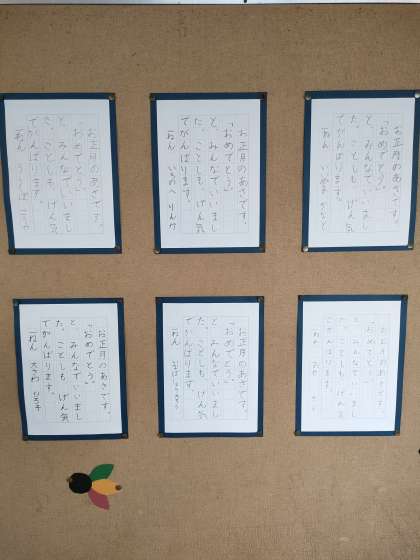 お正月のあさです。
「おめでとう」
と、みんなでいいまし
た。ことしも、げん気
でがんばります。
一ねん
お正月のあさです。
「おめでとう」
と、みんなでいいまし
た。ことしも、げん気
でがんばります。
一ねん いちのへ りんか
お正月のあさです。
「おめでとう」
と、みんなでいいまし
た。ことしも、げん気
でがんばります。
一ねん
お正月のあさです。
「おめでとう」
と、みんなでいいまし
た。ことしも、げん気
でがんばります。
一ねん
お正月のあさです。
「おめでとう」
と、みんなでいいまし
た。ことしも、げん気
でがんばります。
一ねん
お正月のあさです。
「おめでとう」
と、みんなでいいまし
た。ことしも、げん気
でがんばります。
一ねん 大さわ